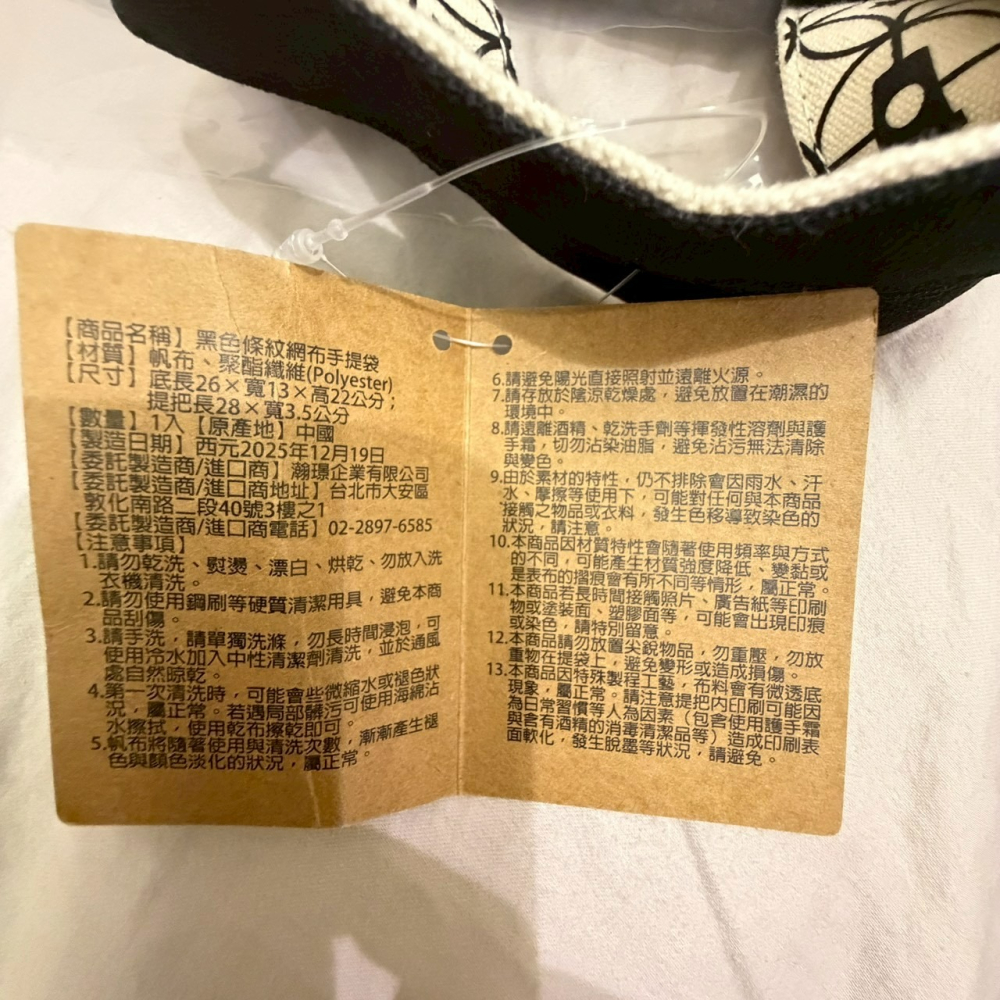 【商品名稱】黑色條紋網布手提袋
【材質】帆布、聚酯纖維(Polyester)
【尺寸】底長26×寬13×高22公分；
提把長28×寬3.5公分
【數量】1入【原產地】中國
【製造日期】西元2025年12月19日
【委託製造商/進口商】瀚璟企業有限公司
【委託製造商/進口商地址】台北市大安區
敦化南路二段40號3樓之1
【委託製造商/進口商電話】02-2897-6585
【注意事項】
1.請勿乾洗、熨燙、漂白、烘乾、勿放入洗
衣機清洗。
2.請勿使用鋼刷等硬質清潔用具，避免本商
品刮傷。
3.請手洗，請單獨洗滌，勿長時間浸泡，可
使用冷水加入中性清潔劑清洗，並於通風
處自然晾乾。
4.第一次清洗時，可能會些微縮水或褪色狀
況，屬正常。若遇局部髒污可使用海綿沾
水擦拭，使用乾布擦乾即可。
5.帆布將隨著使用與清洗次數，漸漸產生褪
色與顏色淡化的狀況，屬正常。
6.請避免陽光直接照射並遠離火源。
7.請存放於陰涼乾燥處，避免放置在潮濕的
環境中。
8.請遠離酒精、乾洗手劑等揮發性溶劑與護
手霜，切勿沾染油脂，避免沾污無法清除
與變色。
9.由於素材的特性，仍不排除會因雨水、汗
水、摩擦等使用下，可能對任何與本商品
接觸之物品或衣料，發生色移導致染色的
狀況，請注意。
10.本商品因材質特性會隨著使用頻率與方式
的不同，可能產生材質強度降低、變黏或
是表布的摺痕會有所不同等情形，屬正常。
11.本商品若長時間接觸照片、廣告紙等印刷
物或塗裝面、塑膠面等，可能會出現印痕
或染色，請特別留意。
12.本商品請勿放置尖銳物品，勿重壓，勿放
重物在提袋上，避免變形或造成損傷。
13.本商品因特殊製程工藝，布料會有微透底
現象，屬正常。請注意提把內印刷可能因
為日常習慣等人為因素（包含使用護手霜
與含有酒精的消毒清潔品等）造成印刷表
面軟化，發生脫墨等狀況，請避免。